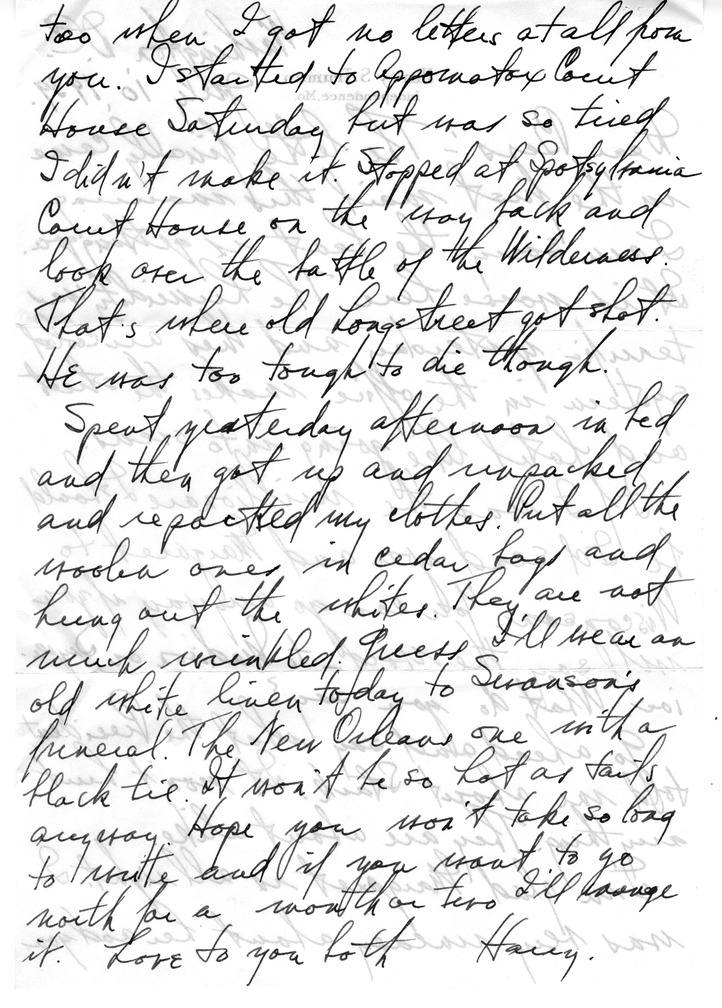 too when I got no letters at all from
you. I started to Appomatox Court
House Saturday but was so tired
I didn't make it. Stopped at Spotsylvania
Court House on the way back and
look over the battle of the Wilderness.
That's where old Longstreet got shot.
HE was too tough to die though.
Spent yesterday afternoon in bed
and then got up and unpacked
and repacked my clothes. Put all the
woolen ones in cedar bags and
hung out the whites. They are not
much wrinkled. Guess I'll wear an
old white linen today to Swanson's
funeral. The New Orleans one with a
black tie. It won't be so hot as tails
anyway. Hope you won't take so long
to write and if you want to go
north for a month or two I'll manage
it. Love to you both Harry.